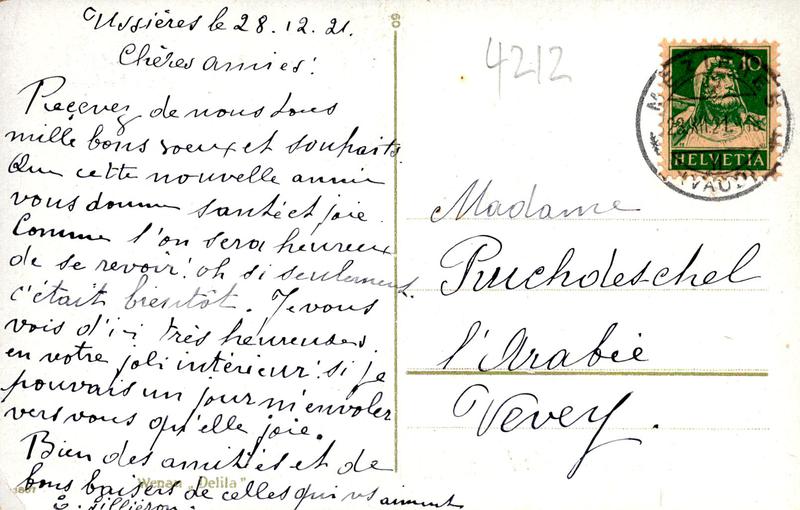 Ussières le 28.12.21.
Chères amies!
Reçevez de nous tous
mille bons voeux et souhaits.
Que cette nouvelle année
vous donne santé et joie.
Comme l'on sera heureux
de se revoir! oh si seulement
c'était bientôt. Je vous
vois d'ici très heureuses
en votre joli intérieur! si je
pouvais un jour m'envoler
vers vous qu'elle joie.
Bien des amitiés et de
bons baisers de celles qui vs aiment
Wenau „Delila"
1887
60
4212
10
HELVETIA
(VAUD)
Madame
Ruchdeschel
l'Arabie
Vevey.